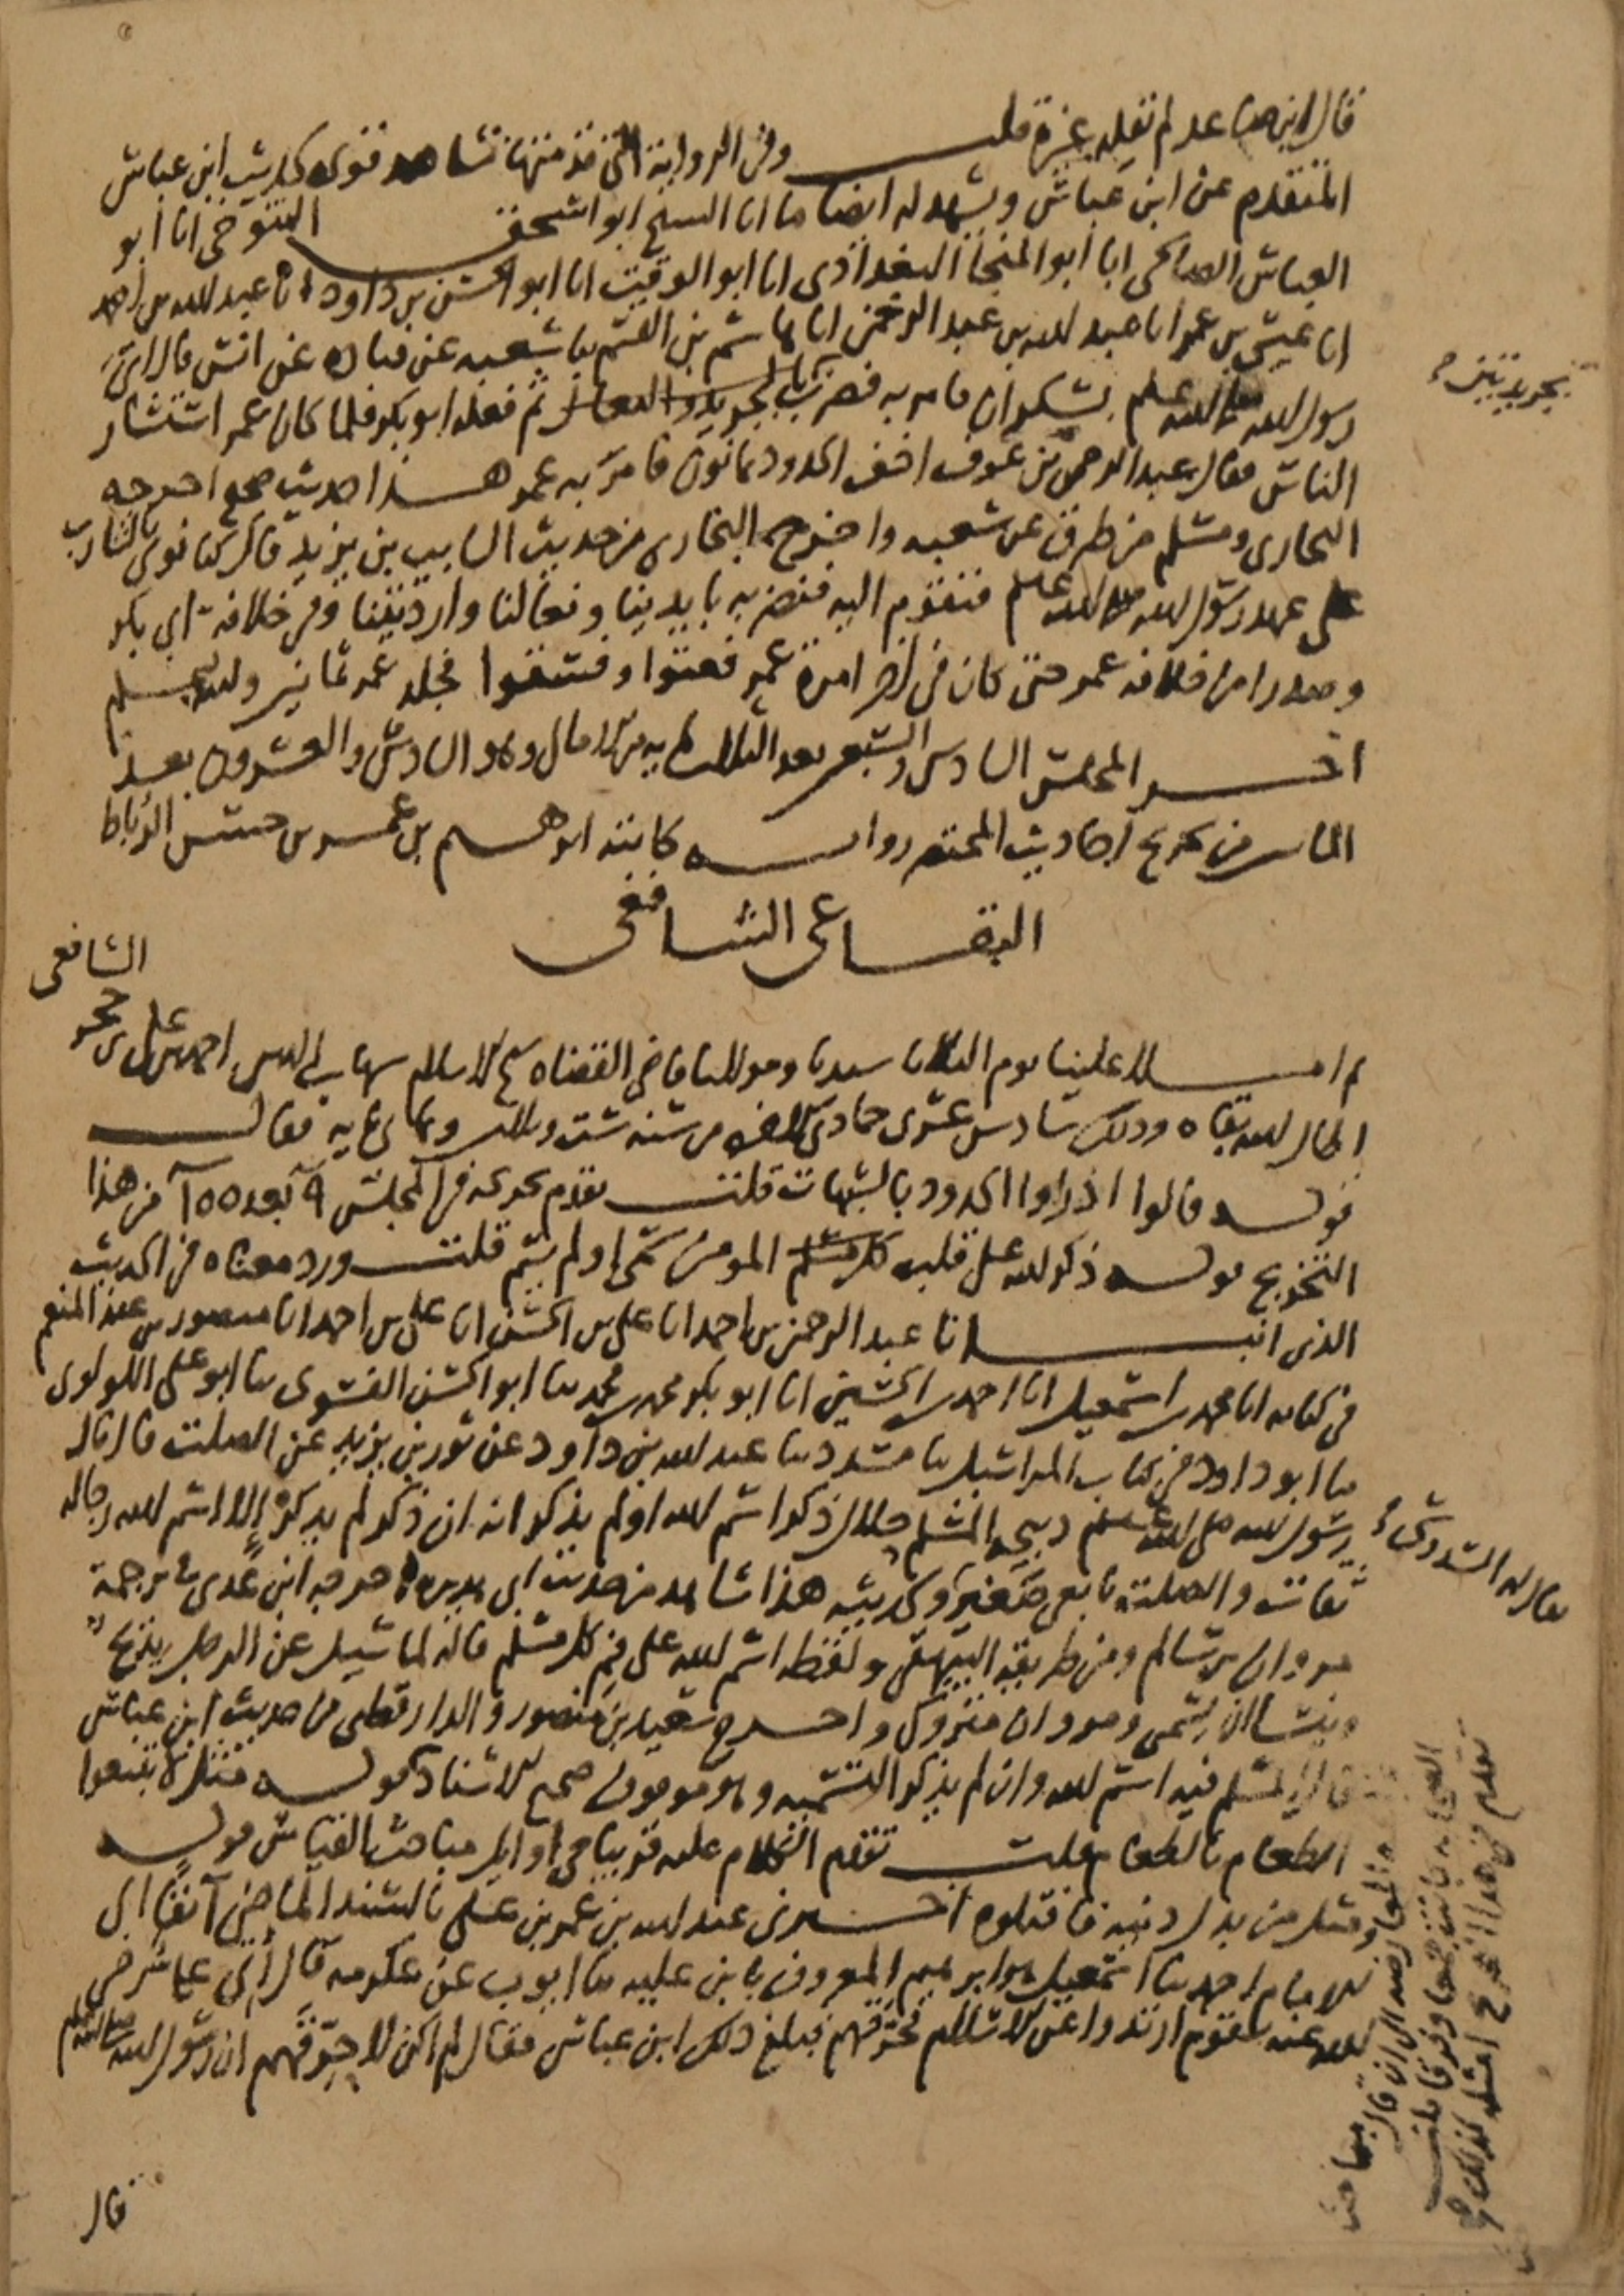 قال ابن صاعد لم نقله غيره قلت وفي الرواية التي قدمتها شاهد قوي كحديث ابن عباس
المتقدم عن ابن عباس ويشهد له ايضا ما انا الشيخ ابو اسحق التنوخي انا ابو
العباس الصالحي انا ابو المنجا البغدادي انا ابو الوقت انا ابو الحسن بن داود انا عبد الله بن احمد
انا عيسى بن عمر انا عبد الله بن عبد الرحمن انا هاشم بن القسم نا شعبه عن قتاده عن انس قال اتي
رسول الله صلى الله عليه وسلم بسكران فامر به فضرب بالجريد والنعال ثم فعله ابو بكر فلما كان عمر استشار
الناس فقال عبد الرحمن بن عوف اخف الحدود ثمانون فامر به عمر هذا حديث صحيح اخرجه
البخاري ومسلم من طرق عن شعبه واخرج البخاري من حديث السايب بن يزيد قال كنا نوتى بالشارب
على عهد رسول الله صلى الله عليه وسلم فنقوم اليه فنضربه بايدينا ونعالنا وارديتنا وفي خلافة ابي بكر
وصدرا من خلافه عمر حتى كان في اخر امرة عمر فعتوا وفسقوا فجلد عمر ثمانين والله اعلم
اخر المجلس السادس والسبعين بعد الثلاث مايه من الامالي وهو السادس والعشرون بعد
الماتين من تخريج احاديث المختصر رواية كاتبه ابرهيم بن عمر بن حسن الرباط
البقاعي الشافعي
الشافعي
ثم املا علينا يوم الثلاثا سيدنا ومولانا قاضي القضاه شيخ الاسلام شهاب الدين احمد بن علي بن حجر
اطال الله بقاه وذلك سادس عشري جمادى الاخره من سنه ست وثلاثين وثمانمايه فقال
قوله قالوا ادراوا الحدود بالشبهات قلت تقدم تخريجه في المجلس ٩ بعد ١٥٥ من هذا
التخريج قوله ذكر الله على قلب كل مسلم المومن سمى او لم يسم قلت ورد معناه في الحديث
الذي انبانا عبد الرحمن بن احمد انا علي بن الحسن انا علي بن احمد انا منصور بن عبد المنعم
في كتابه انا محمد بن اسمعيل انا احمد بن الحسين انا ابو بكر محمد بن محمد نا ابو الحسن الفسوي نا ابو علي اللولوي
نا ابو داود في كتاب المراسيل نا مسدد نا عبد الله بن داود عن ثور بن يزيد عن الصلت قال قال
رسول الله صلى الله عليه وسلم ذبيحه المسلم حلال ذكر اسم الله او لم يذكر انه ان ذكر لم يذكر الا اسم الله رجاله
ثقات والصلت تابعي صغير ولحديثه هذا شاهد من حديث ابي هريره اخرجه ابن عدي في ترجمة
مروان بن سالم ومن طريقه البيهقي ولفظه اسم الله على فم كل مسلم قاله لما سيل عن الرجل يذبح
وينسا ان يسمي ومروان متروك واخرج سعيد بن منصور والدارقطني من حديث ابن عباس
قال المسلم فيه اسم الله وان لم يذكر التسميه وهو موقوف صحيح الاسناد قوله مثل لا تبيعوا
الطعام بالطعام قلت تقدم الكلام عليه قريبا في اوايل مباحث القياس قوله
ومثل من بدل دينه فاقتلوه اخبرني عبد الله بن عمر بن علي بالسند الماضي آنفا الى
الامام احمد نا اسمعيل بن ابرهيم المعروف بابن عليه نا ايوب عن عكرمه قال اتي علي رضي
الله عنه بقوم ارتدوا عن الاسلام فحرقهم فبلغ ذلك ابن عباس فقال لم اكن لاحرقهم ان رسول الله صلى الله عليه وسلم
قال
بجريدتين
يقال له السدوسي
المعارضه الى ان قال
تقدم في هذا التخريج